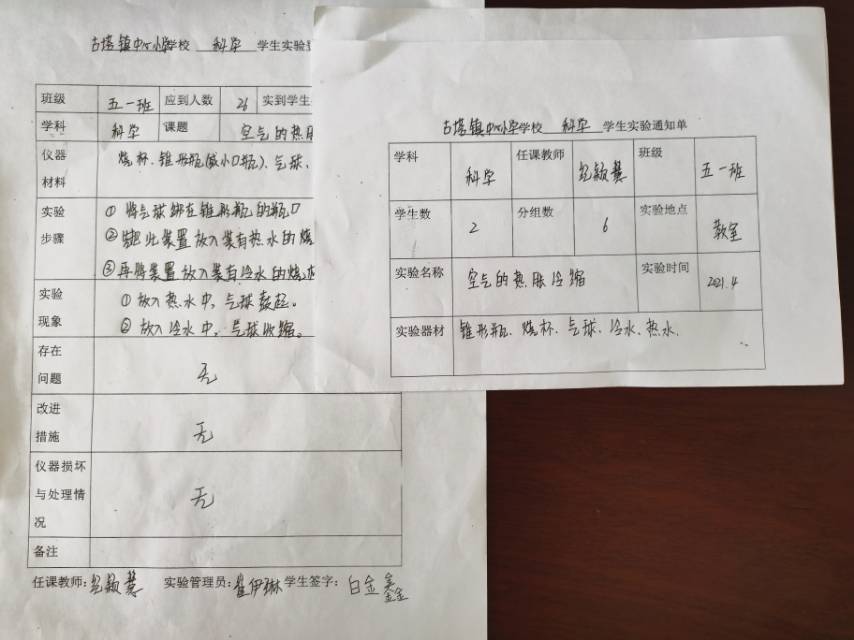 古塔镇中心小学学校 科学 学生实验
班级 五一班 应到人数 26 实到学生
学科 科学 课题 空气的热胀
仪器材料 烧杯、锥形瓶(或小口瓶)、气球、
实验步骤 ① 将气球绑在锥形瓶的瓶口
② 把此装置放入装有热水的烧
③ 再将装置放入装有冷水的烧杯
实验现象 ① 放入热水中,气球鼓起。
② 放入冷水中,气球收缩。
存在问题 无
改进措施 无
仪器损坏与处理情况 无
备注
任课教师: 实验管理员:崔伊琳 学生签字:白金鑫
古塔镇中心小学学校 科学 学生实验通知单
学科 科学 任课教师 班级 五一班
学生数 2 分组数 6 实验地点 教室
实验名称 空气的热胀冷缩 实验时间 2021.4
实验器材 锥形瓶、烧杯、气球、冷水、热水.